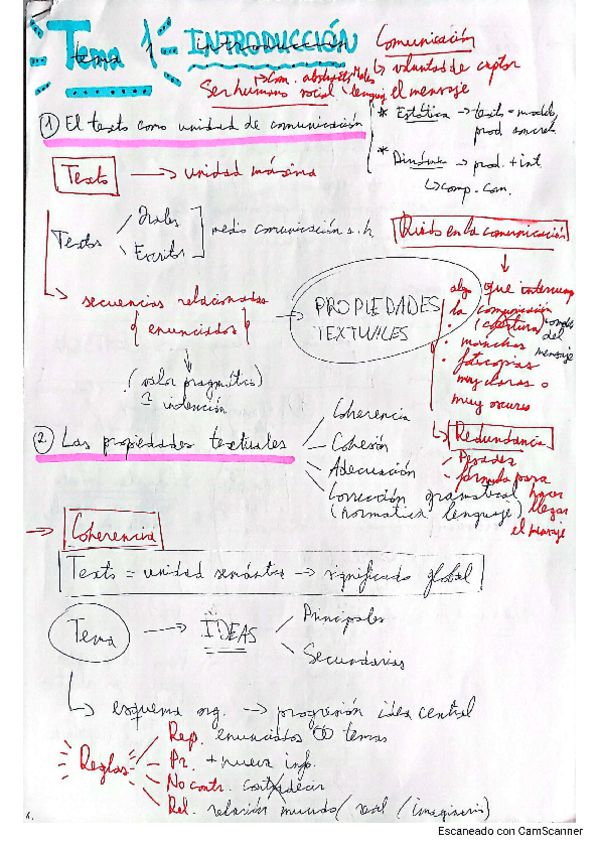 Tema 1 INTRODUCCIÓN
Comunicación
↳ voluntad de captar
el mensaje
Ser humano social
① El texto como unidad de comunicación
* Estática → texto = modelo,
prod. concret.
* Dinámica → prod. + int.
↳ comp. com.
Texto → unidad máxima
Textos
Orales
Escritos
medio comunicación s. h
Ruido en la comunicación
↳ secuencias relacionadas
{ enunciados } → PROPIEDADES
TEXTUALES
algo que interrump
la comunicación
(cobertura)
del
mensaje
• manchas
• fotocopias
muy claras o
muy oscuras
(valor pragmático)
= intención
② Las propiedades textuales
Coherencia
Cohesión
Adecuación
Corrección gramatical
(normativa lenguaje)
↳ Redundancia
fórmula para
hacer
llegar
el mensaje
→ Coherencia
Texto = unidad semántica → significado global
Tema → IDEAS
Principales
Secundarias
↳ esquema org. → progresión idea central
Reglas
Rep. enunciados temas
Pr. + nueva info.
No contr. contradecir
Rel. relación mundo (real / imaginario)
Escaneado con CamScanner